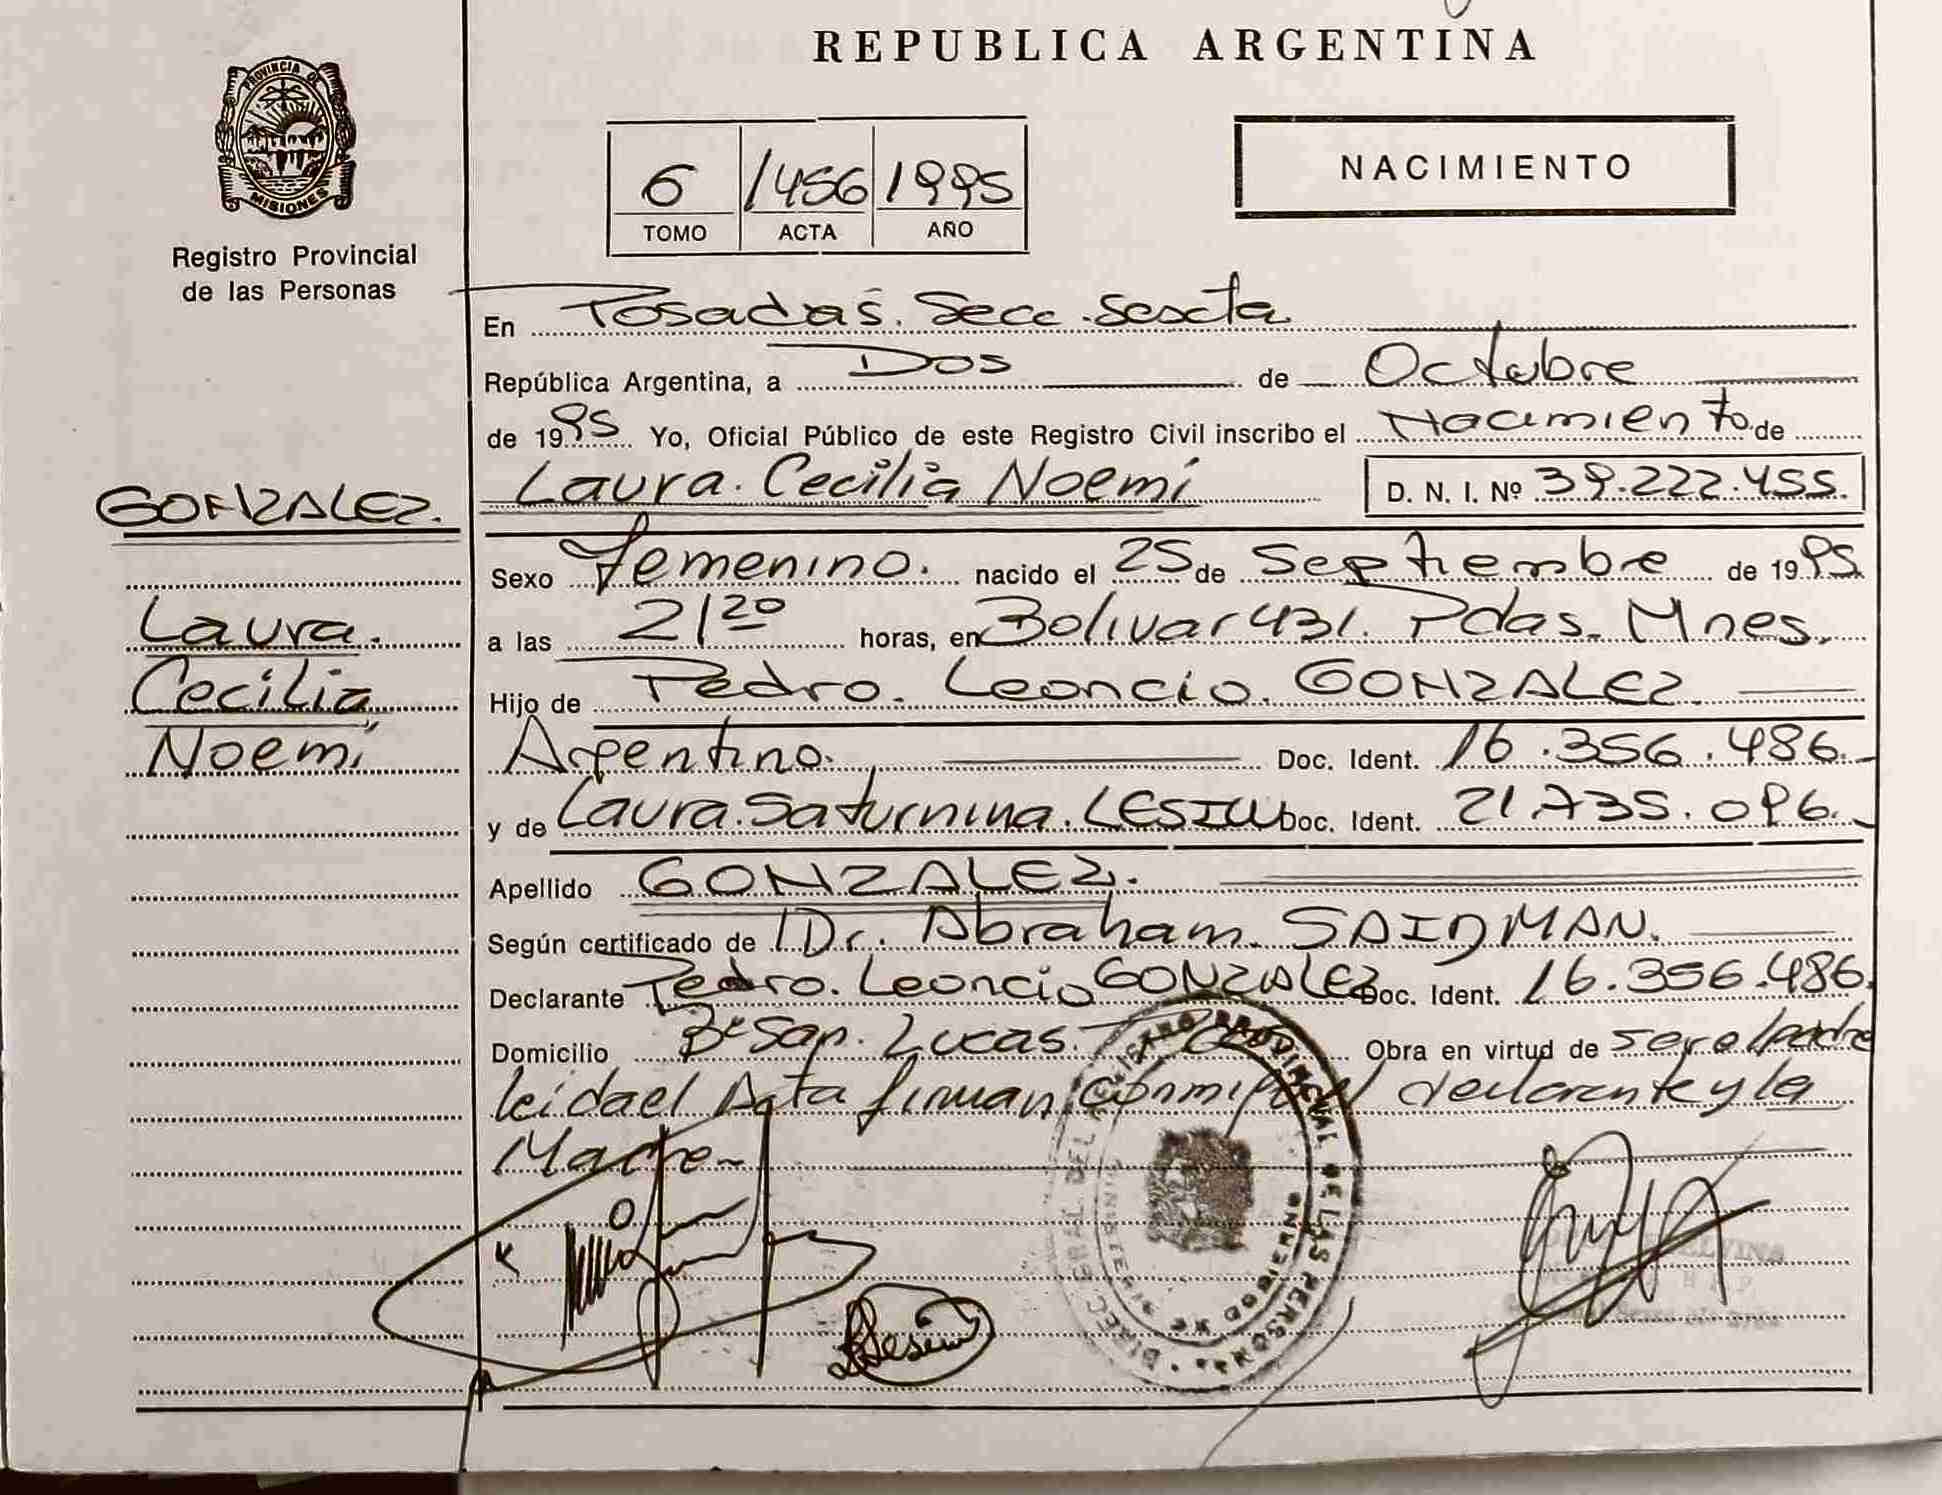 REPUBLICA ARGENTINA
PROVINCIA DE
MISIONES
Registro Provincial
de las Personas
6 1456 1995
TOMO ACTA AÑO
NACIMIENTO
En Posadas. Secc. Sexta
República Argentina, a Dos de Octubre
de 1995 Yo, Oficial Público de este Registro Civil inscribo el Nacimiento de
Laura. Cecilia Noemí D. N. I. Nº 39.222.455.
GONZALEZ.
Laura.
Cecilia
Noemí
Sexo Femenino. nacido el 25 de Septiembre de 1995
a las 21 20 horas, en Bolivar 431. Pdas. Mnes.
Hijo de Pedro. Leoncio. GONZALEZ
Argentino. Doc. Ident. 16.356.486.
y de Laura. Saturnina. LESIW Doc. Ident. 21.735.096.
Apellido GONZALEZ.
Según certificado de Dr. Abraham. SAIDMAN.
Declarante Pedro. Leoncio GONZALEZ Doc. Ident. 16.356.486.
Domicilio Bº San. Lucas. Obra en virtud de ser el padre
leida el Acta firman conmigo el declarante y la
Madre
DIREC. GRAL. DEL REGISTRO PROVINCIAL DE LAS PERSONAS
MINISTERIO DE GOBIERNO